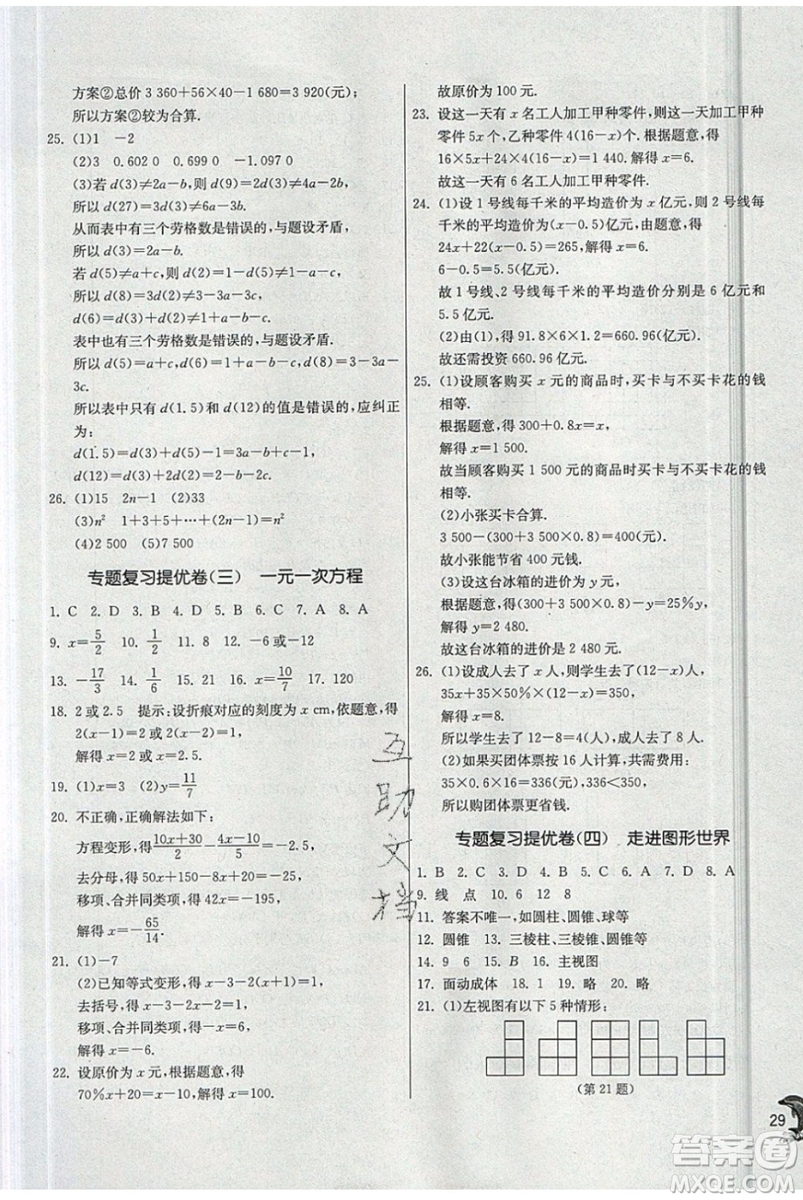 方案②总价 3 360+56×40-1 680=3 920(元);
所以方案②较为合算.
25. (1)1  -2
(2)3  0.602 0  0.699 0  -1.097 0
(3)若 d(3)≠2a-b,则 d(9)=2d(3)≠4a-2b,
所以 d(27)=3d(3)≠6a-3b.
从而表中有三个劳格数是错误的,与题设矛盾,
所以 d(3)=2a-b.
若 d(5)≠a+c,则 d(2)=1-d(5)≠1-a-c,
所以 d(8)=3d(2)≠3-3a-3c,
d(6)=d(3)+d(2)≠1+a-b-c,
表中也有三个劳格数是错误的,与题设矛盾.
所以 d(5)=a+c,d(6)=1+a-b-c,d(8)=3-3a-
3c.
所以表中只有 d(1.5)和 d(12)的值是错误的,应纠正
为:
d(1.5)=d(3)+d(5)-1=3a-b+c-1,
d(12)=d(3)+2d(2)=2-b-2c.
26. (1)15  2n-1  (2)33
(3)n²  1+3+5+…+(2n-1)=n²
(4)2 500  (5)7 500
专题复习提优卷(三)  一元一次方程
1. C  2. D  3. B  4. D  5. B  6. C  7. A  8. A
9. x=5/2  10. 1/2  11. 8  12. -6或-12
13. -17/3  14. 1/6  15. 21  16. x=10/7  17. 120
18. 2 或 2.5  提示:设折痕对应的刻度为 x cm,依题意,得
2(x-1)=2 或 2(x-2)=1,
解得 x=2 或 x=2.5.
19. (1)x=3  (2)y=11/7
20. 不正确,正确解法如下:
方程变形,得(10x+30)/2-(4x-10)/5=-2.5,
去分母,得 50x+150-8x+20=-25,
移项、合并同类项,得 42x=-195,
解得 x=-65/14.
21. (1)-7
(2)已知等式变形,得 x-2(x+1)=4,
去括号,得 x-2x-2=4,
移项、合并同类项,得-x=6,
解得 x=-6.
22. 设原价为 x 元,根据题意,得
70%x+20=x-10,解得 x=100.
故原价为 100 元.
23. 设这一天有 x 名工人加工甲种零件,则这一天加工甲种
零件 5x 个,乙种零件 4(16-x)个.根据题意,得
16×5x+24×4(16-x)=1 440. 解得 x=6.
故这一天有 6 名工人加工甲种零件.
24. (1)设 1 号线每千米的平均造价为 x 亿元,则 2 号线每
千米的平均造价为(x-0.5)亿元,由题意,得
24x+22(x-0.5)=265,解得 x=6.
6-0.5=5.5.
故 1 号线、2 号线每千米的平均造价分别是 6 亿元和
5.5 亿元.
(2)由(1)得 91.8×6×1.2=660.96(亿元).
故还需投资 660.96 亿元.
25. (1)设顾客购买 x 元的商品时,买卡与不买卡花的钱
相等.
根据题意,得 300+0.8x=x,
解得 x=1 500.
故当顾客购买 1 500 元的商品时买卡与不买卡花的钱
相等.
(2)小张买卡合算.
3 500-(300+3 500×0.8)=400(元),
故小张能节省 400 元钱.
(3)设这台冰箱的进价为 y 元,
根据题意,得(300+3 500×0.8)-y=25%y,
解得 y=2 480.
故这台冰箱的进价是 2 480 元.
26. (1)设成人去了 x 人,则学生去了(12-x)人,
35x+35×50%×(12-x)=350,
解得 x=8.
所以学生去了 12-8=4(人),成人去了 8 人.
(2)如果买团体票按 16 人计算,共需费用:
35×0.6×16=336(元),336<350,
所以购团体票更省钱.
专题复习提优卷(四)  走进图形世界
1. B  2. C  3. C  4. D  5. A  6. D  7. D  8. A
9. 线  点  10. 6  12  8
11. 答案不唯一,如圆柱、圆锥、球等
12. 圆锥  13. 三棱柱、三棱锥、圆锥
14. 9  6  15. B  16. 主视图
17. 面动成体  18. 略  19. 略  20. 略
21. (1)左视图有以下 5 种情形:
(第 21 题)
29
互
助
文
档
答案圈
MXQE.COM